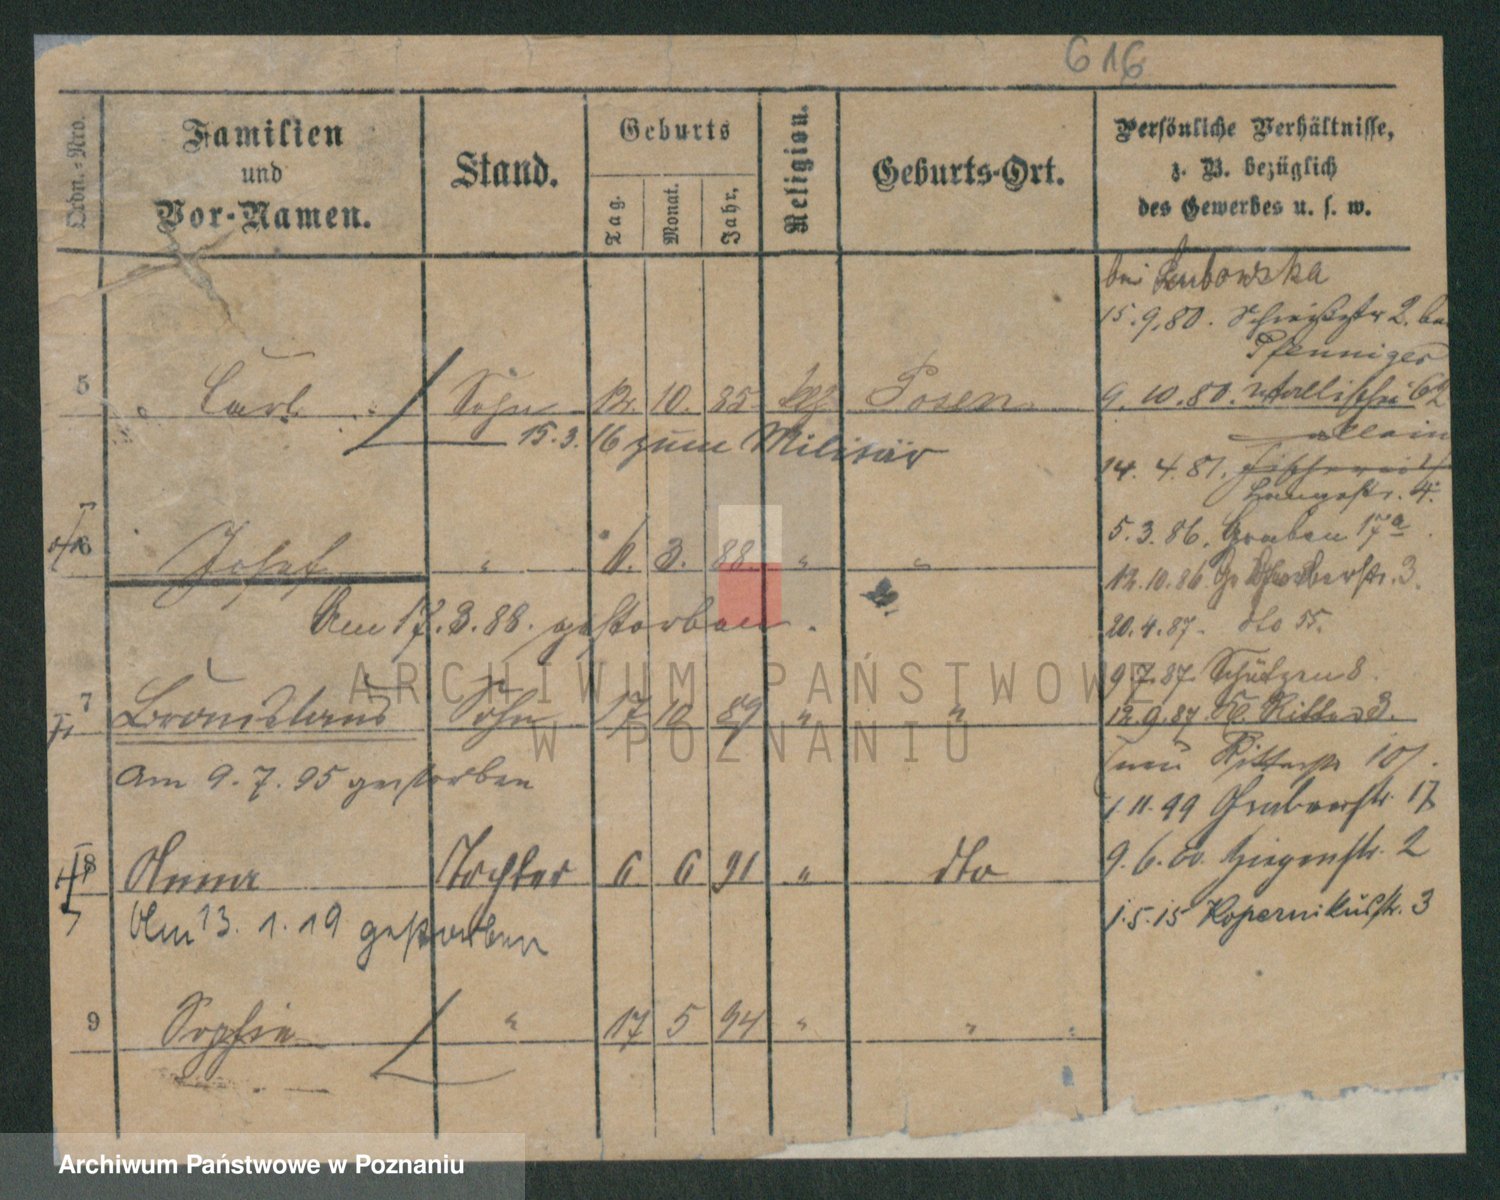 616
Ordn.-Nro.
Familien
und
Vor-Namen.
Stand.
Geburts
Tag.
Monat.
Jahr.
Religion.
Geburts-Ort.
Persönliche Verhältnisse,
z. B. bezüglich
des Gewerbes u. s. w.
bei Lubowska
15.9.80. 2. bei
Pfenniger
5 Carl Sohn 12. 10. 85 Posen
9. 10. 80. Wallischei 62
allein
15.3.16 zum Militär
14. 4. 81.
Langestr. 4.
5. 3. 86. Graben 17a
6 Josef " 1. 3. 88. " "
12.10.86 Gr. Gerberstr. 3.
Am 17.3.88. gestorben.
20.4.87. dto 55.
9.7.87. Schützen 8.
7 Bronislaus Sohn 17 10 89 " "
12.9.87 St. Ritter 3.
am 9.7.95 gestorben
(neu Ritterstr 10).
1.11.99 Grabenstr. 17
8 Anna Tochter 6 6 91 " dto
9.6.00. Ziegenstr. 2
Am 13.1.19 gestorben
1.5.15 Kopernikusstr. 3
9 Sophie " 17 5 94 " "
ARCHIWUM PAŃSTWOWE
W POZNANIU
Archiwum Państwowe w Poznaniu